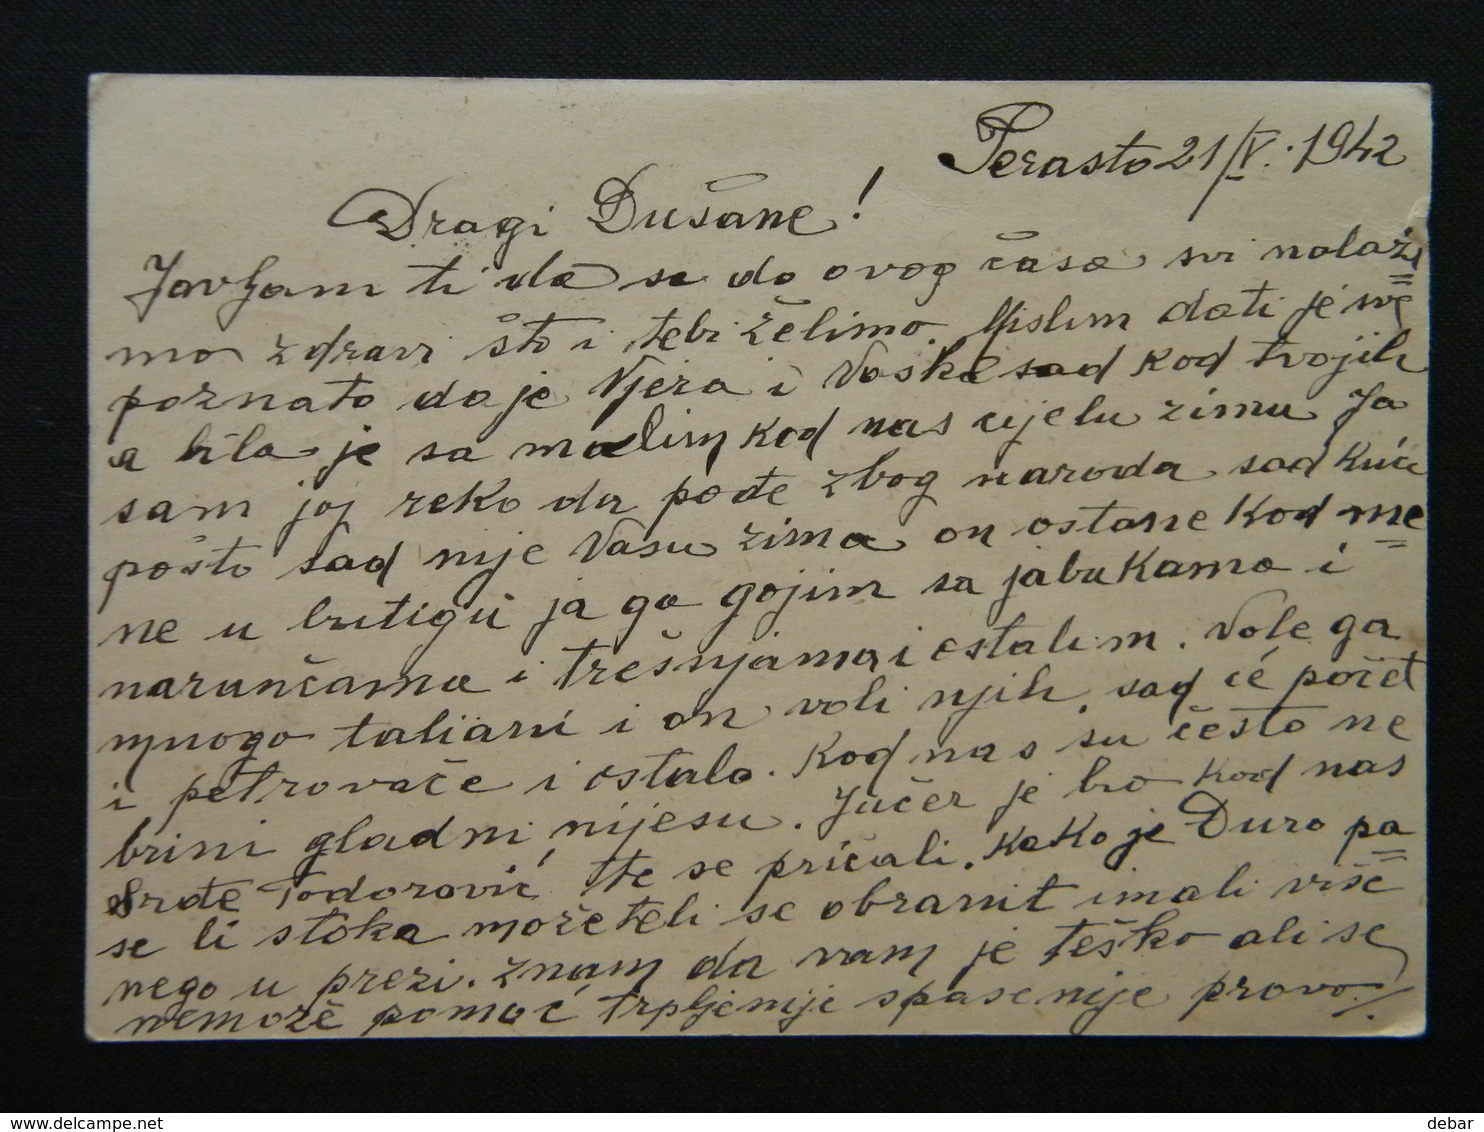 Perasto 21/V. 1942
Dragi Dušane!
Javljam ti da se do ovog časa svi nalaži=
mo zdravi što i tebi želimo. Mislim dati je sve
poznato da je Vjera i Vaske sad kod tvojih
a bila je sa malim kod nas cijelu zimu Ja
sam joj reko da pođe zbog naroda sad kući
pošto sad nije Vasu zima on ostane kod me=
ne u butigu ja ga gojim sa jabukama i
narunčama i trešnjama i ostalim. Vole ga
mnogo talijani i on voli njih, sad će počet
i petrovače i ostalo. Kod nas su često ne
brini gladni nijesu. Jučer je bio kod nas
Srđe Todorović te se pričali. Kako je Đuro pa=
se li stoka možeteli se obranit imali više
nego u prezi. Znam da vam je teško ali se
nemože pomoć trpljenije spasenije pravo/.
delcampe.net
debar